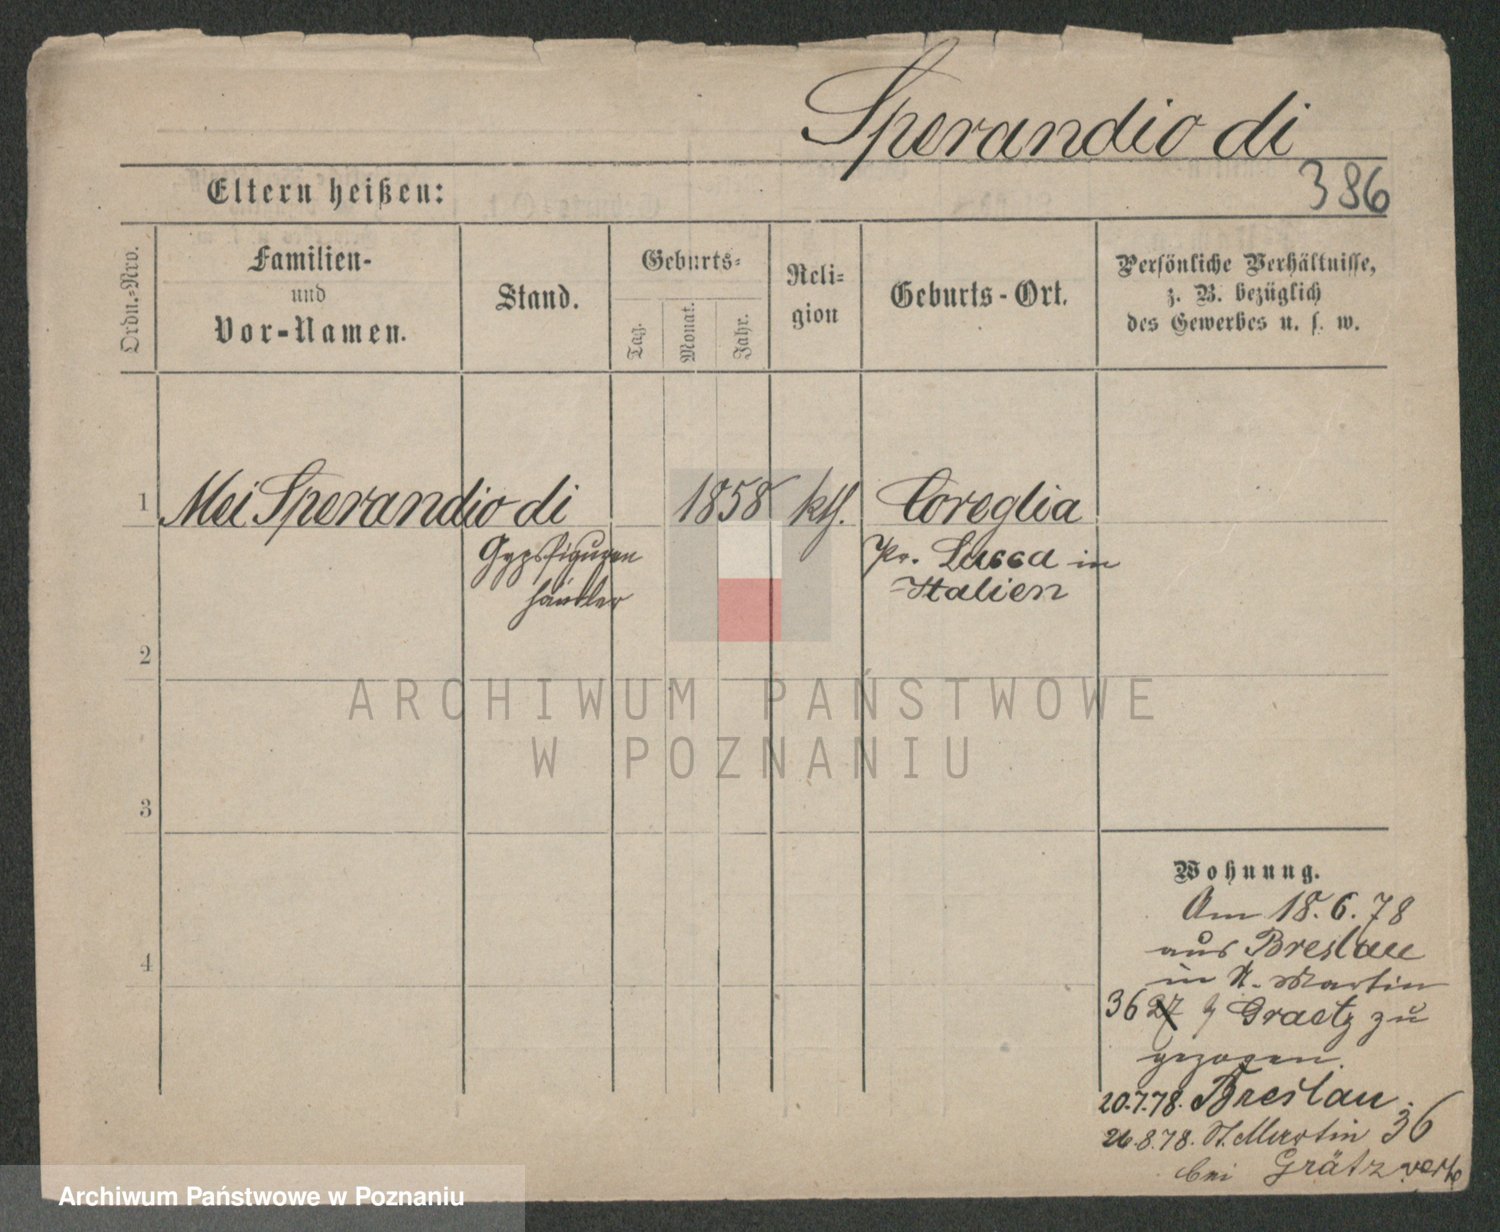 Sperandio di
386
Eltern heißen:
Ordn.-Nro.
Familien-
und
Vor-Namen.
Stand.
Geburts-
Tag.
Monat.
Jahr.
Reli-
gion
Geburts-Ort.
Persönliche Verhältnisse,
z. B. bezüglich
des Gewerbes u. s. w.
1 Mei Sperandio di 1858 kth. Coreglia
Gypsfiguren
händler
Pr. Lucca in
Italien
2
3
4
ARCHIWUM PAŃSTWOWE
W POZNANIU
Wohnung.
Am 18.6.78
aus Breslau
in St. Martin
36 27 Graetz zu
gezogen.
20.7.78. Breslau.
26.8.78. St. Martin 36
bei Grätz
Archiwum Państwowe w Poznaniu